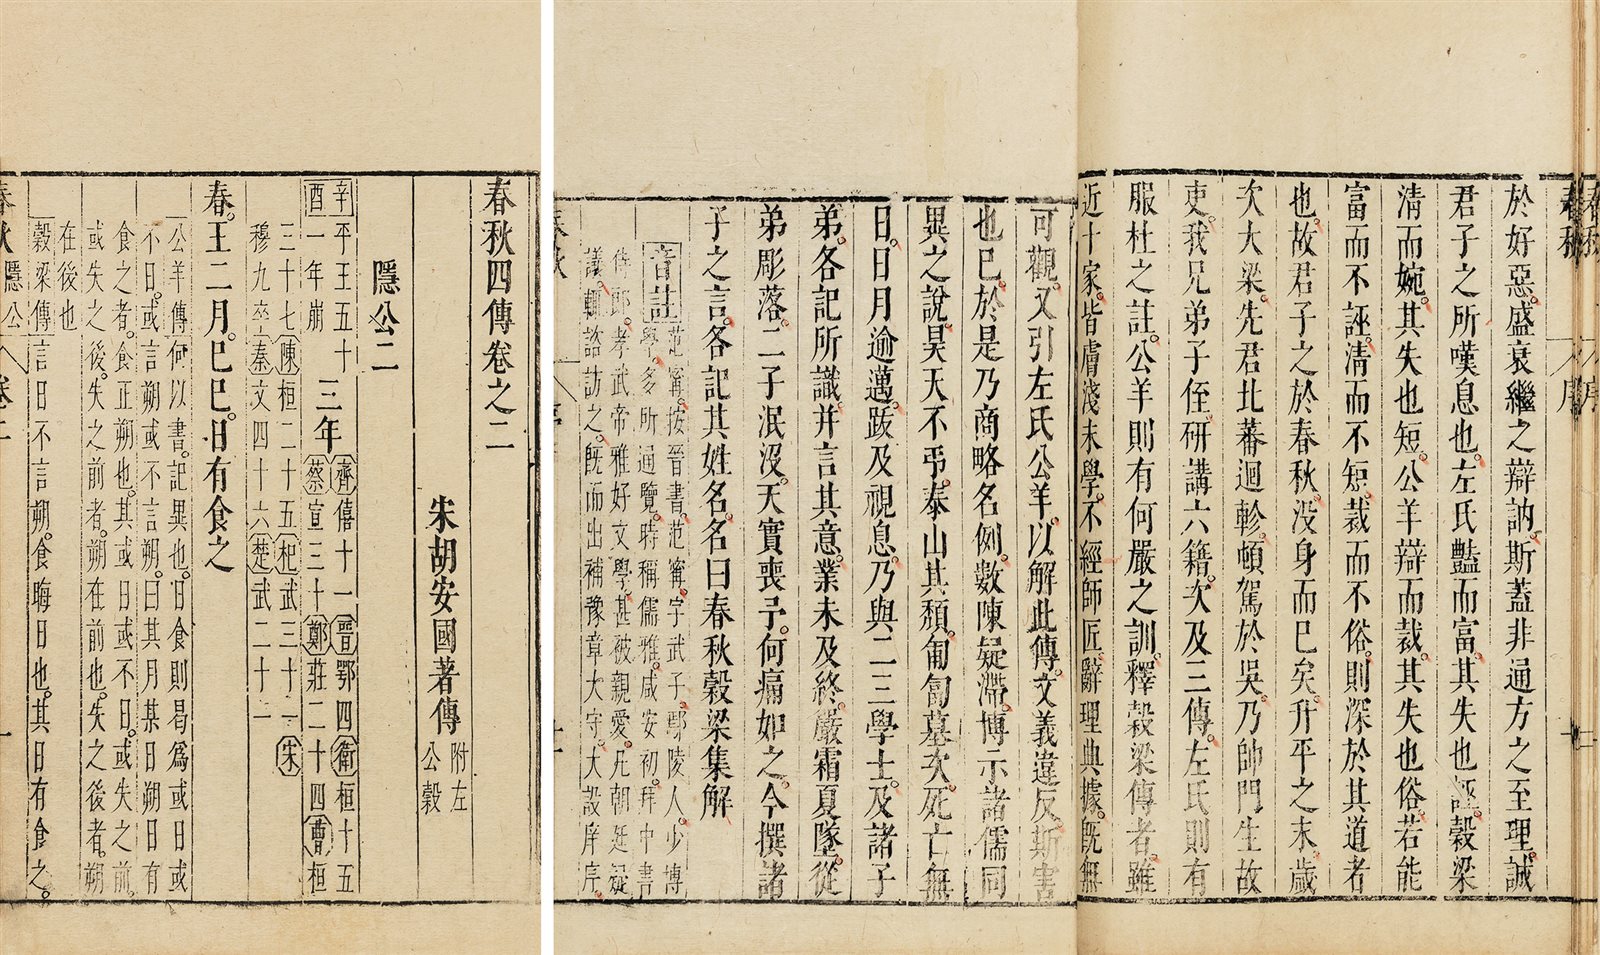 春秋 序
於好惡。盛衰繼之辯訥。斯蓋非通方之至理。誠
君子之所嘆息也。左氏豔而富。其失也誣。穀梁
清而婉。其失也短。公羊辯而裁。其失也俗。若能
富而不誣。清而不短。裁而不俗。則深於其道者
也。故君子之於春秋。沒身而已矣。升平之末。歲
次大梁。先君北蕃迴軫。頓駕於吳。乃帥門生故
吏。我兄弟子侄。研講六籍。次及三傳。左氏則有
服杜之註。公羊則有何嚴之訓。釋穀梁傳者。雖
近十家。皆膚淺末學。不經師匠。辭理典據。既無
可觀。又引左氏公羊。以解此傳。文義違反。斯害
也已。於是乃商略名例。敷陳疑滯。博示諸儒同
異之說。昊天不弔。泰山其頹。匍匐墓次。死亡無
日。日月逾邁。跂及視息。乃與二三學士。及諸子
弟。各記所識。并言其意。業未及終。嚴霜夏墜。從
弟彫落。二子泯沒。天實喪予。何痛如之。今撰諸
子之言。各記其姓名。名曰春秋穀梁集解
音註 范甯。按晉書。范甯。字武子。鄢陵人。少博
學多所通覽。時稱儒雅。咸安初。拜中書
侍郎。孝武帝雅好文學。甚被親愛。凡朝廷疑
議。輒諮訪之。既而出補豫章大守。大設庠序。
春秋四傳卷之二
朱胡安國著傳 附左
公穀
隱公二
辛酉 平王五十
一年崩 三年 齊僖十一 晉鄂四 衛桓十五
蔡宣三十 鄭莊二十四 曹桓
三十七 陳桓二十五 杞武三十一 宋
穆九卒 秦文四十六 楚武二十一
春。王二月。巳巳。日有食之
公羊傳 何以書。記異也。日食則曷爲或日或
不日。或言朔或不言朔。曰其月某日朔日有
食之者。食正朔也。其或日或不日。或失之前
或失之後。失之前者。朔在前也。失之後者。朔
在後也
穀梁傳 言日不言朔。食晦日也。其日有食之。
春秋 隱公 卷二 一